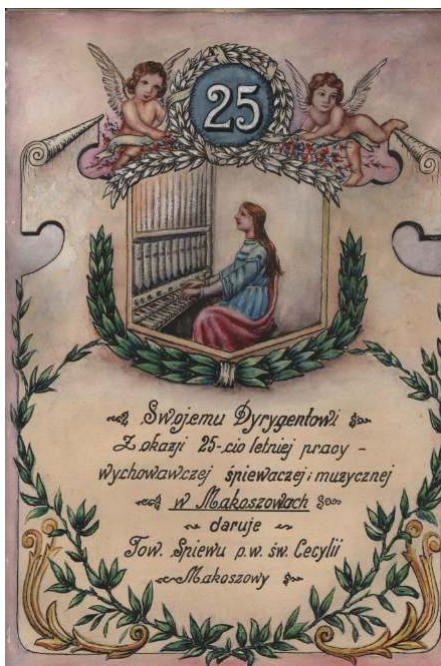 25
Swojemu Dyrygentowi
Z okazji 25-cio letniej pracy -
wychowawczej śpiewaczej i muzycznej
w Makoszowach
daruje
Tow. Śpiewu p.w. św. Cecylii
Makoszowy